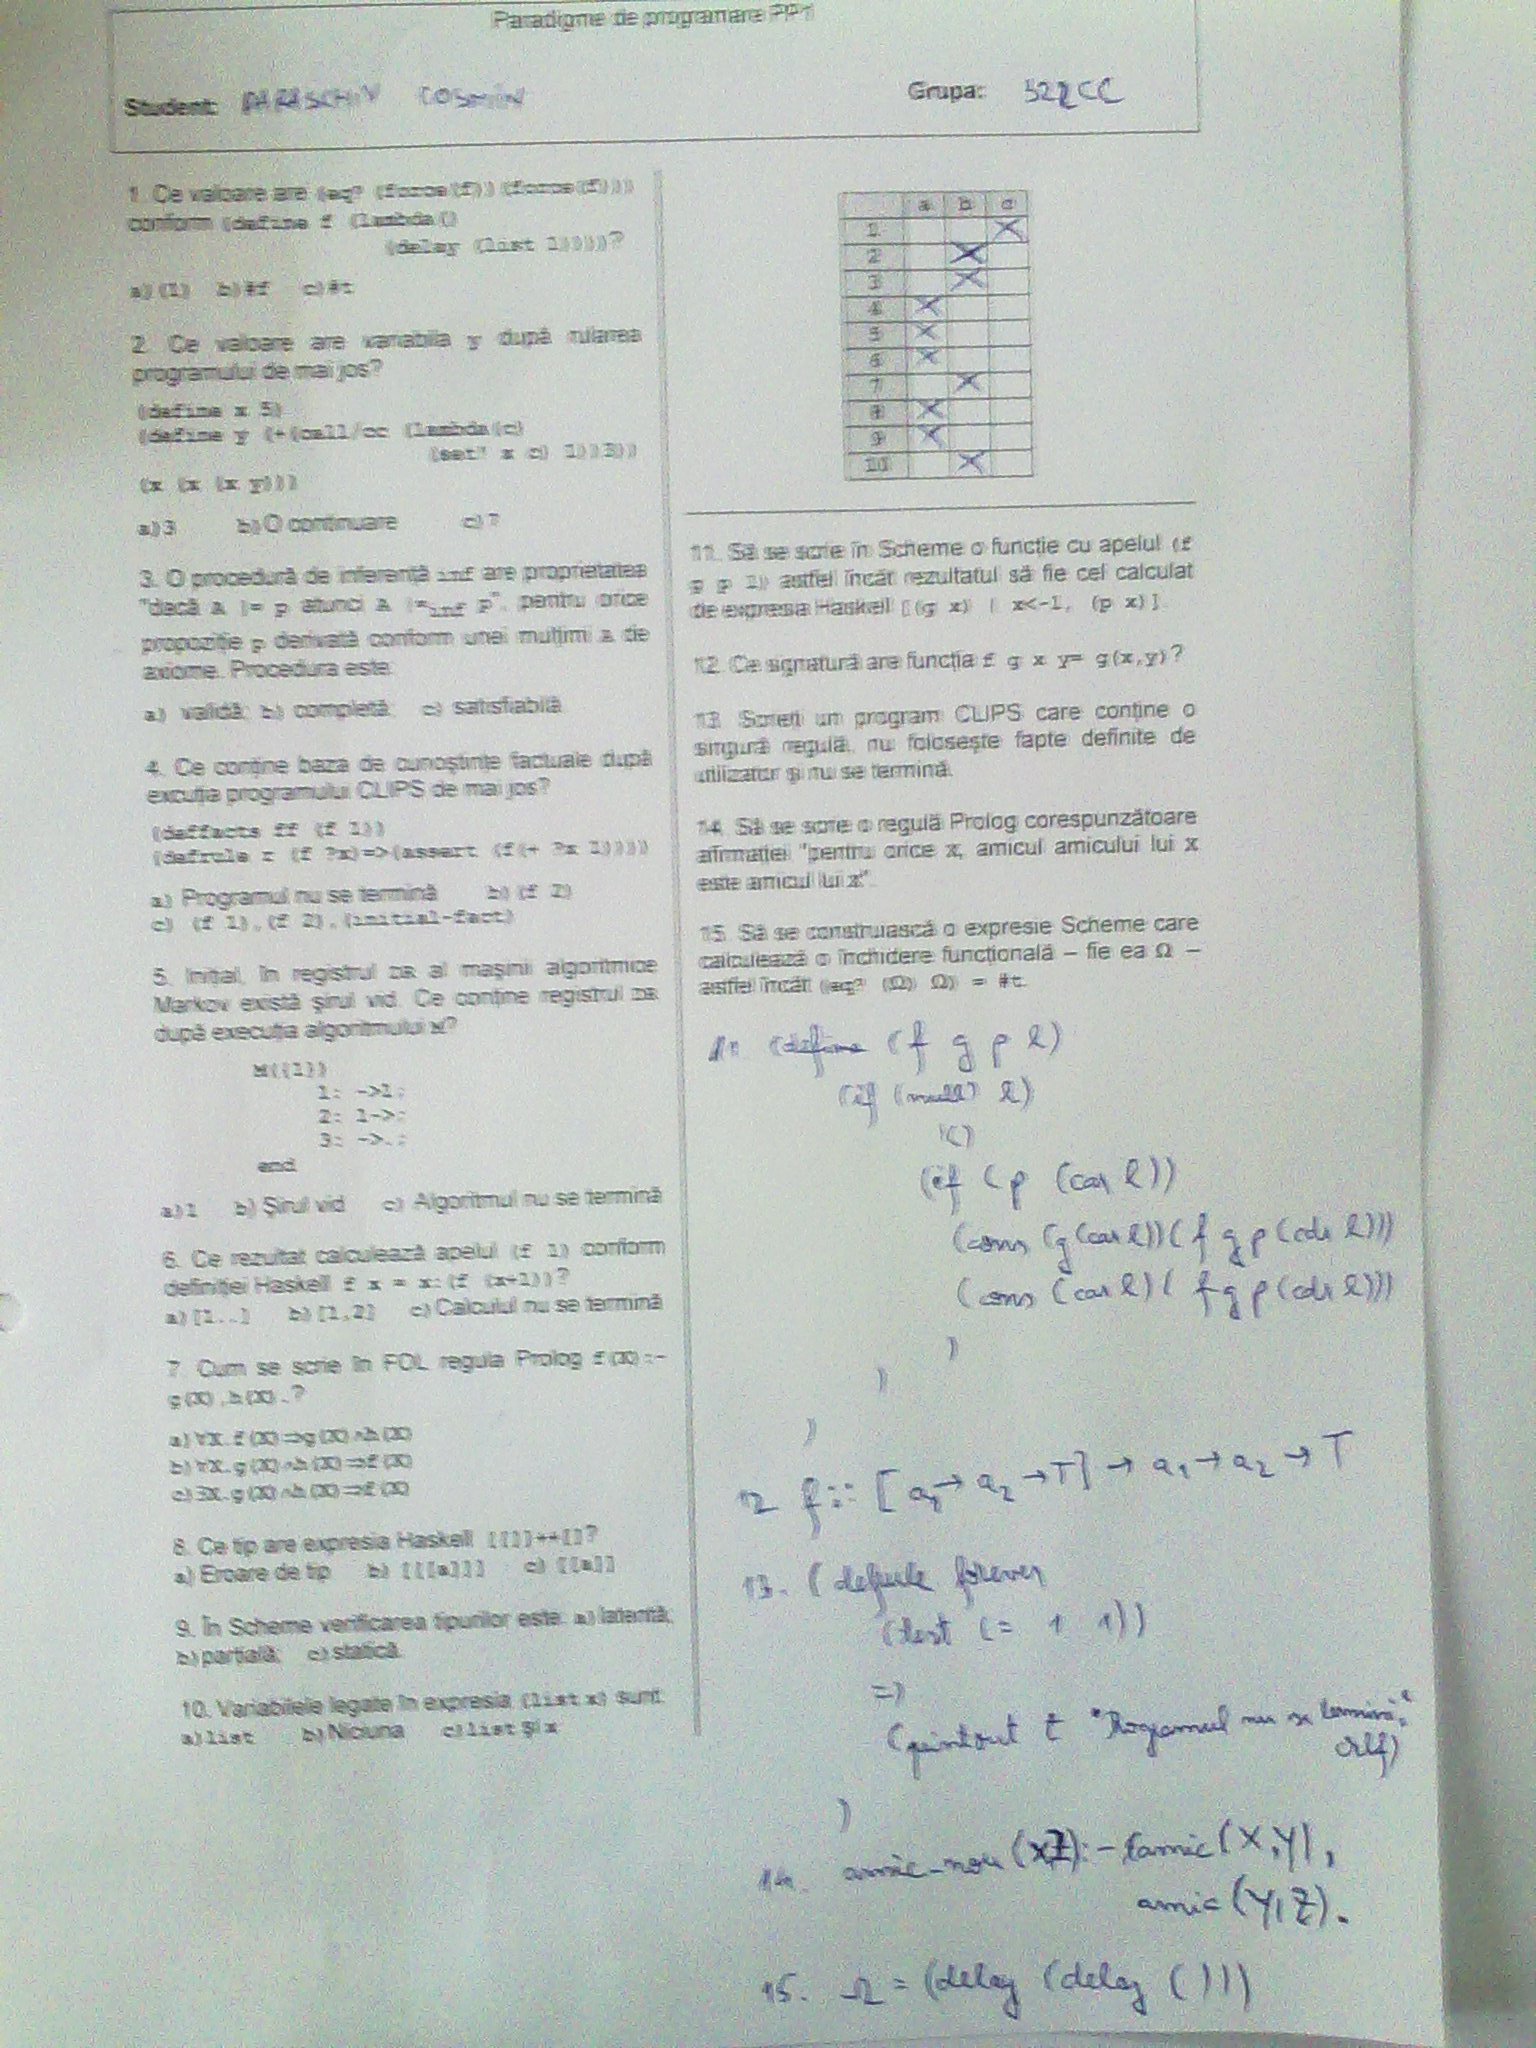 Paradigme de programare PP1
Student: PARASCHIV COSMIN Grupa: 322CC
1. Ce valoare are (eq? (force(f)) (force(f)))
conform (define f (lambda()
(delay (list 1))))?
a) (1) b) #f c) #t
2. Ce valoare are variabila y după rularea
programului de mai jos?
(define x 5)
(define y (+(call/cc (lambda(c)
(set! x c) 1))3))
(x (x (x y)))
a) 3 b) O continuare c) ?
3. O procedură de inferență inf are proprietatea
"dacă A |= p atunci A |=inf p", pentru orice
propoziție p derivată conform unei mulțimi A de
axiome. Procedura este:
a) validă; b) completă; c) satisfiabilă
4. Ce conține baza de cunoștințe factuale după
excuția programului CLIPS de mai jos?
(deffacts ff (f 1))
(defrule r (f ?x)=>(assert (f(+ ?x 1))))
a) Programul nu se termină b) (f 2)
c) (f 1),(f 2),(initial-fact)
5. Inițial, în registrul DR al mașinii algoritmice
Markov există șirul vid. Ce conține registrul DR
după execuția algoritmului M?
M({1})
1: ->1;
2: 1->;
3: ->.;
end
a) 1 b) Șirul vid c) Algoritmul nu se termină
6. Ce rezultat calculează apelul (f 1) conform
definiției Haskell f x = x:(f (x+1))?
a) [1..] b) [1,2] c) Calculul nu se termină
7. Cum se scrie în FOL regula Prolog f(X):-
g(X),h(X).?
a) ∀X.f(X)⇒g(X)∧h(X)
b) ∀X.g(X)∧h(X)⇒f(X)
c) ∃X.g(X)∧h(X)⇒f(X)
8. Ce tip are expresia Haskell [[]]++[]?
a) Eroare de tip b) [[[a]]] c) [[a]]
9. În Scheme verificarea tipurilor este: a) latentă;
b) parțială; c) statică
10. Variabilele legate în expresia (list x) sunt:
a) list b) Niciuna c) list și x
a b c
1 X
2 X
3 X
4 X
5 X
6 X
7 X
8 X
9 X
10 X
11. Să se scrie în Scheme o funcție cu apelul (f
g p l) astfel încât rezultatul să fie cel calculat
de expresia Haskell [(g x) | x<-l, (p x)].
12. Ce signatură are funcția f g x y= g(x,y)?
13. Scrieți un program CLIPS care conține o
singură regulă, nu folosește fapte definite de
utilizator și nu se termină.
14. Să se scrie o regulă Prolog corespunzătoare
afirmației "pentru orice x, amicul amicului lui x
este amicul lui x".
15. Să se construiască o expresie Scheme care
calculează o închidere funcțională – fie ea Ω –
astfel încât (eq? (Ω) Ω) = #t.
11. (define (f g p l)
(if (null? l)
'()
(if (p (car l))
(cons (g(car l))(f g p (cdr l)))
(cons (car l)( f g p (cdr l)))
)
)
)
12 f:: [a1→ a2 →T] → a1→ a2 → T
13. (defrule forever
(test (= 1 1))
=>
(printout t "Programul nu se termină"
crlf)
)
14. amic_nou (X,Z):- amic(X,Y),
amic(Y,Z).
15. Ω = (delay (delay ( )))